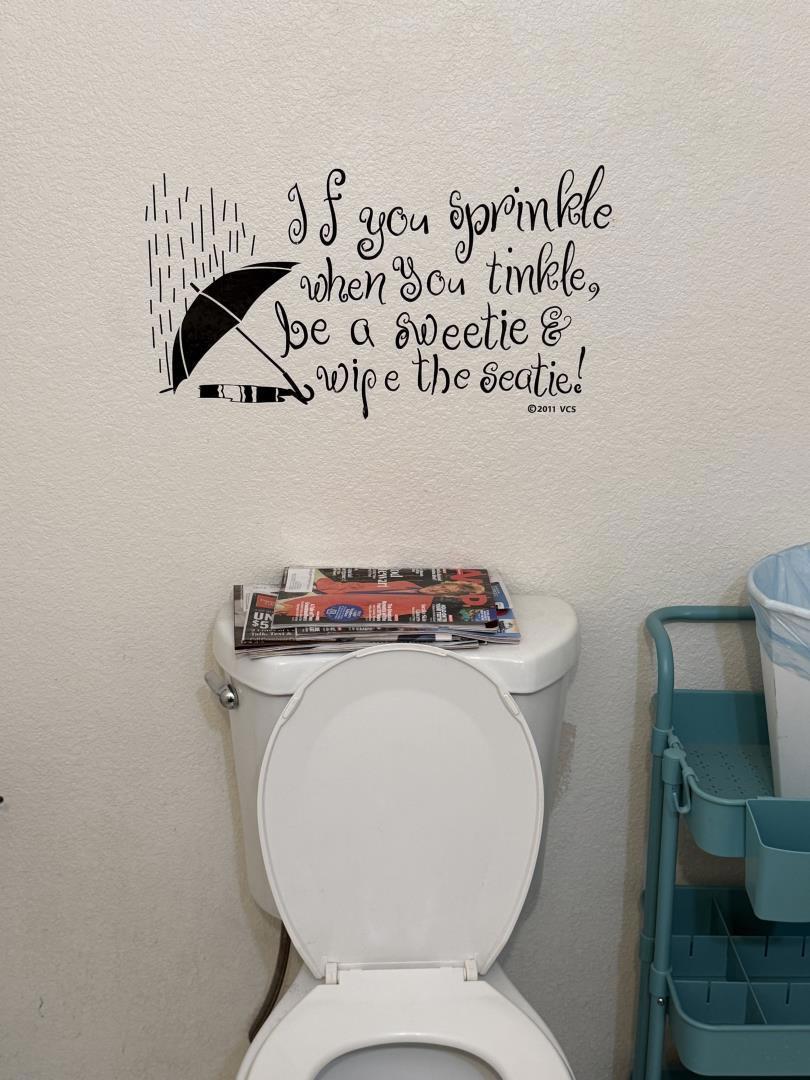 If you sprinkle
when you tinkle,
be a sweetie &
wipe the seatie!
©2011 VCS